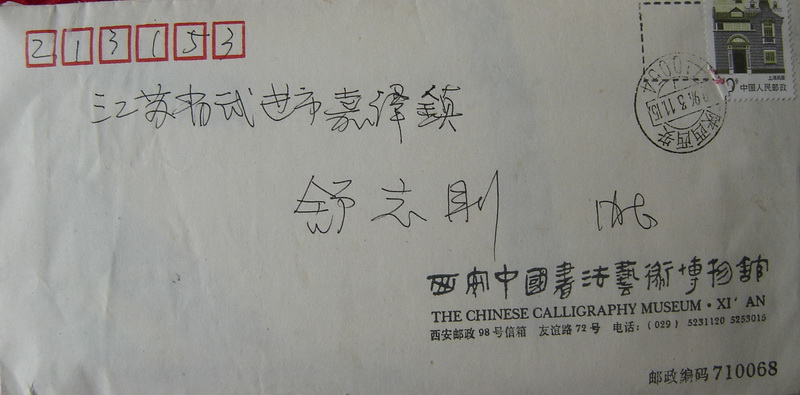 213153
上海民居
中国人民邮政
陕西西安
江苏省武进市嘉泽镇
舒志刚 收
西安中國書法藝術博物館
THE CHINESE CALLIGRAPHY MUSEUM · XI' AN
西安邮政98号信箱 友谊路72号 电话:(029) 5231120 5253015
邮政编码710068